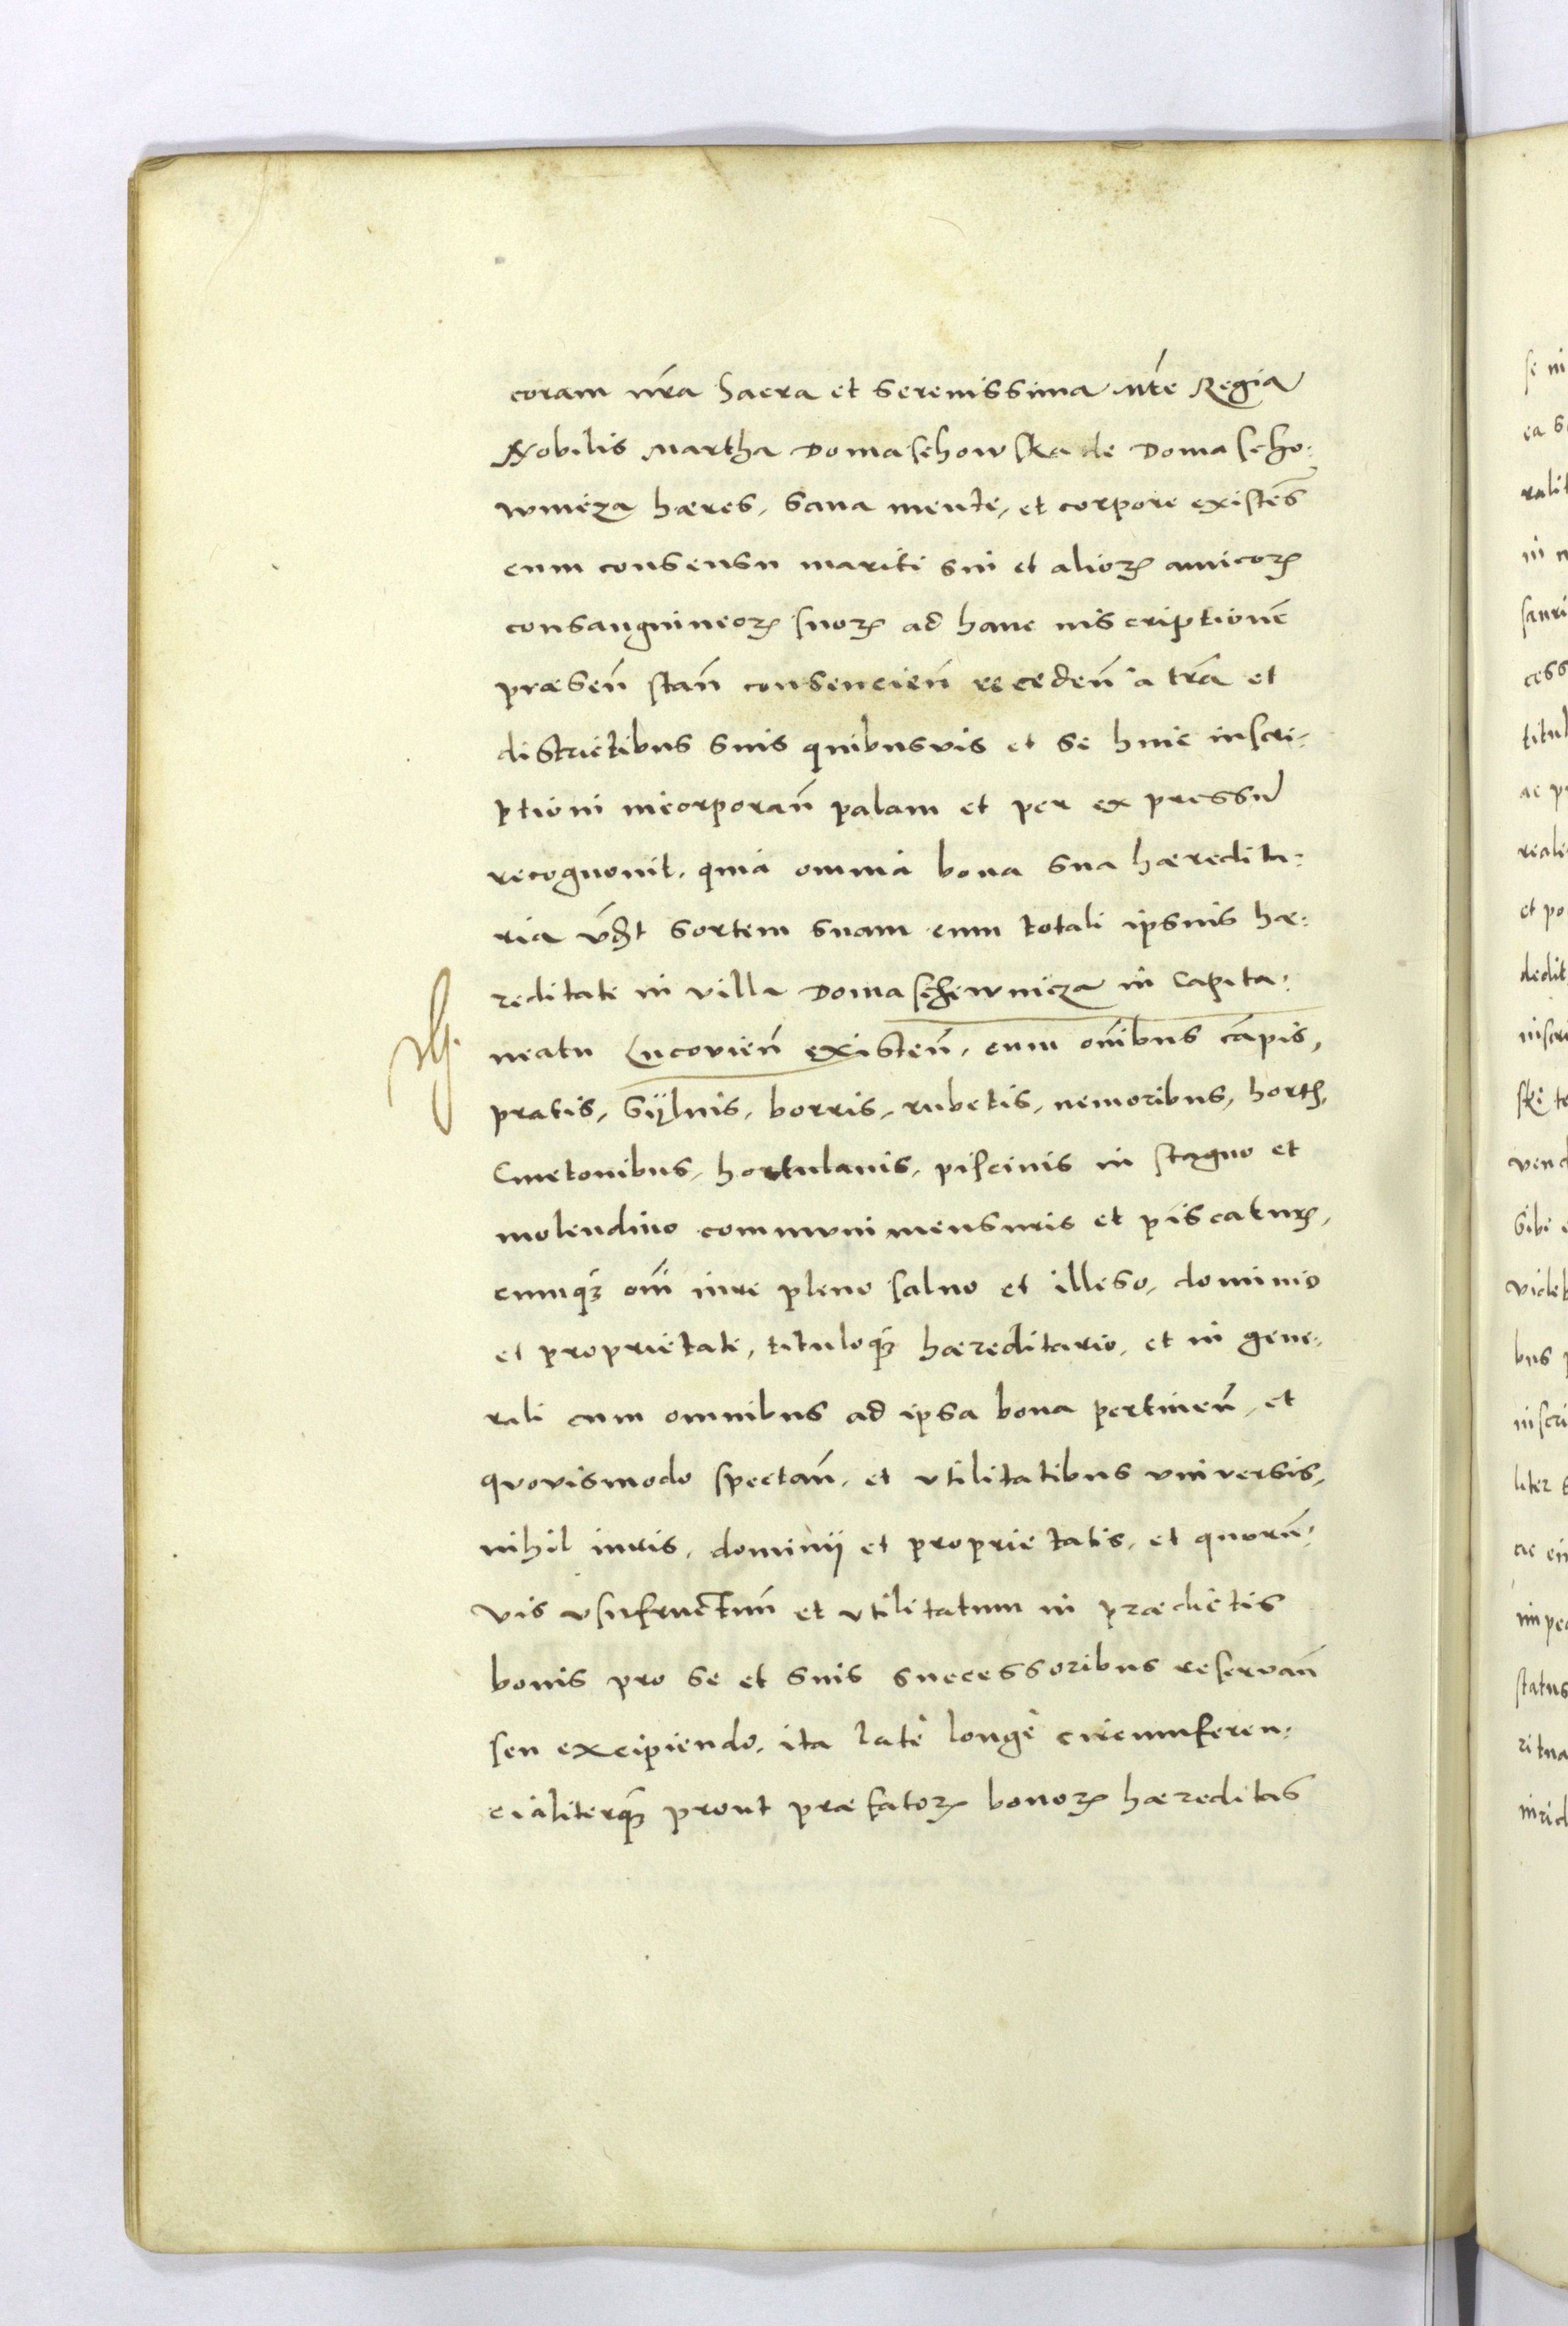 coram nr̃a Sacra et Serenissima Mt̃e Regia
Nobilis Martha Domaschowska de Domascho:
wnicza hæres, sana mente, et corpore existẽs
cum consensu mariti sui et alioꝝ amicoꝝ
consanguineoꝝ suoꝝ ad hanc inscriptionẽ
præseñ stañ consencieñ recedeñ a tr̃a et
districtibus suis quibusvis et se huic inscri-
ptioni incorporañ palam et per expressũ
recognovit, quia omnia bona sua hæredita:
ria vꝫt sortem suam cum totali ipsius hæ:
reditate in villa Domaschewnicza in Capita:
neatu Lucovieñ existeñ, cum om̃ibus cãpis,
pratis, Sÿlvis, borris, rubetis, nemoribus, hortꝭ,
Cmetonibus, hortulanis, piscinis in stagno et
molendino communi mensuris et piscaturꝭ,
cumqꝫ om̃i iure pleno salvo et illeso, dominio
et proprietate, tituloqꝫ hæreditario, et in gene-
rali cum omnibus ad ipsa bona pertineñ, et
quovismodo spectañ, et utilitatibus universis,
nihil iuris, dominij et proprietatis, et quorũ-
vis usufructuũ et utilitatum in prædictis
bonis pro se et suis successoribus reservañ
seu excipiendo, ita latè longè circumferen-
cialiterqꝫ prout præfatoꝝ bonoꝝ hæreditas